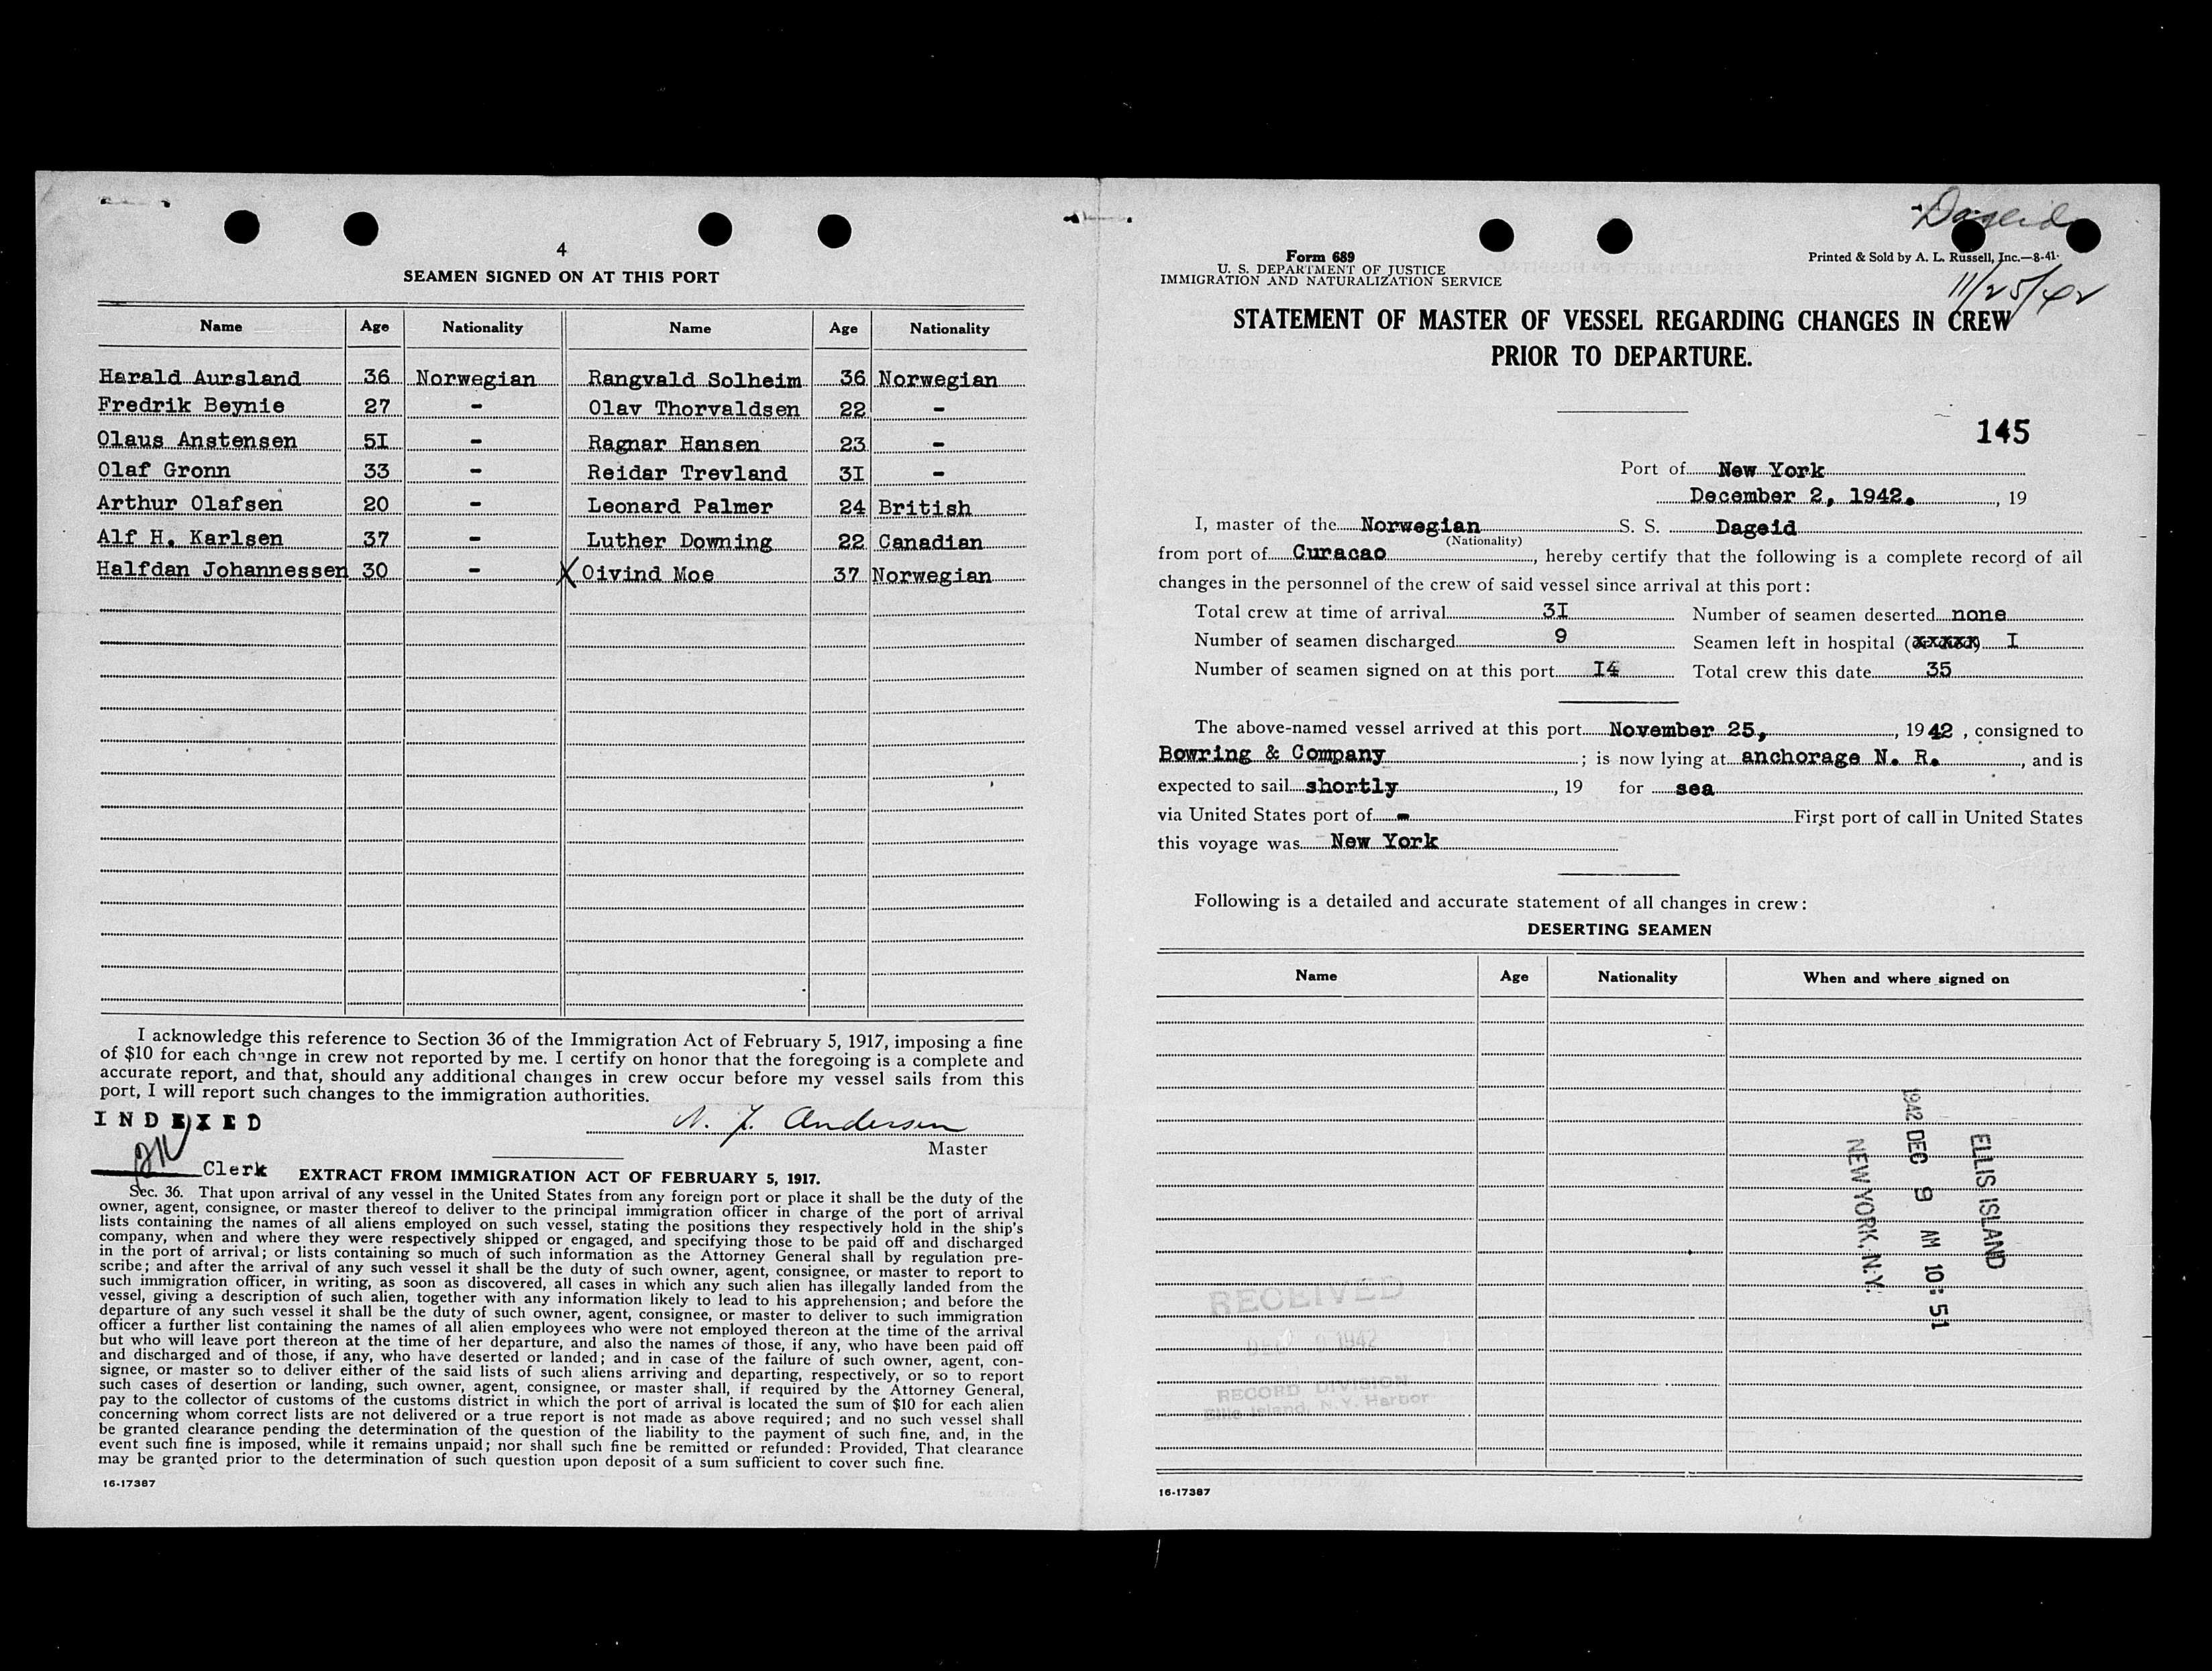 4
SEAMEN SIGNED ON AT THIS PORT
Name Age Nationality Name Age Nationality
Harald Aursland 36 Norwegian Rangvald Solheim 36 Norwegian
Fredrik Beynie 27 - Olav Thorvaldsen 22 -
Olaus Anstensen 5I - Ragnar Hansen 23 -
Olaf Gronn 33 - Reidar Trevland 3I -
Arthur Olafsen 20 - Leonard Palmer 24 British
Alf H. Karlsen 37 - Luther Downing 22 Canadian
Halfdan Johannessen 30 - X Oivind Moe 37 Norwegian
I acknowledge this reference to Section 36 of the Immigration Act of February 5, 1917, imposing a fine
of $10 for each change in crew not reported by me. I certify on honor that the foregoing is a complete and
accurate report, and that, should any additional changes in crew occur before my vessel sails from this
port, I will report such changes to the immigration authorities.
INDEXED
Andersen
Master
Clerk
EXTRACT FROM IMMIGRATION ACT OF FEBRUARY 5, 1917.
Sec. 36. That upon arrival of any vessel in the United States from any foreign port or place it shall be the duty of the
owner, agent, consignee, or master thereof to deliver to the principal immigration officer in charge of the port of arrival
lists containing the names of all aliens employed on such vessel, stating the positions they respectively hold in the ship's
company, when and where they were respectively shipped or engaged, and specifying those to be paid off and discharged
in the port of arrival; or lists containing so much of such information as the Attorney General shall by regulation pre-
scribe; and after the arrival of any such vessel it shall be the duty of such owner, agent, consignee, or master to report to
such immigration officer, in writing, as soon as discovered, all cases in which any such alien has illegally landed from the
vessel, giving a description of such alien, together with any information likely to lead to his apprehension; and before the
departure of any such vessel it shall be the duty of such owner, agent, consignee, or master to deliver to such immigration
officer a further list containing the names of all alien employees who were not employed thereon at the time of the arrival
but who will leave port thereon at the time of her departure, and also the names of those, if any, who have been paid off
and discharged and of those, if any, who have deserted or landed; and in case of the failure of such owner, agent, con-
signee, or master so to deliver either of the said lists of such aliens arriving and departing, respectively, or so to report
such cases of desertion or landing, such owner, agent, consignee, or master shall, if required by the Attorney General,
pay to the collector of customs of the customs district in which the port of arrival is located the sum of $10 for each alien
concerning whom correct lists are not delivered or a true report is not made as above required; and no such vessel shall
be granted clearance pending the determination of the question of the liability to the payment of such fine, and, in the
event such fine is imposed, while it remains unpaid; nor shall such fine be remitted or refunded: Provided, That clearance
may be granted prior to the determination of such question upon deposit of a sum sufficient to cover such fine.
16-17387
Dageid
Form 689
U. S. DEPARTMENT OF JUSTICE
IMMIGRATION AND NATURALIZATION SERVICE
Printed & Sold by A. L. Russell, Inc.—8-41.
11/25/42
STATEMENT OF MASTER OF VESSEL REGARDING CHANGES IN CREW
PRIOR TO DEPARTURE.
145
Port of New York
December 2, 1942. , 19
I, master of the Norwegian S. S. Dageid
(Nationality)
from port of Curacao , hereby certify that the following is a complete record of all
changes in the personnel of the crew of said vessel since arrival at this port:
Total crew at time of arrival 3I Number of seamen deserted none
Number of seamen discharged 9 Seamen left in hospital (xxxxx) I
Number of seamen signed on at this port I4 Total crew this date 35
The above-named vessel arrived at this port November 25, , 1942 , consigned to
Bowring & Company ; is now lying at anchorage N. R. , and is
expected to sail shortly , 19 for sea
via United States port of - First port of call in United States
this voyage was New York
Following is a detailed and accurate statement of all changes in crew:
DESERTING SEAMEN
Name Age Nationality When and where signed on
ELLIS ISLAND
1942 DEC 9 AM 10:51
NEW YORK, N.Y.
RECEIVED
DEC 1942
RECORD DIVISION
Ellis Island, N.Y. Harbor
16-17387